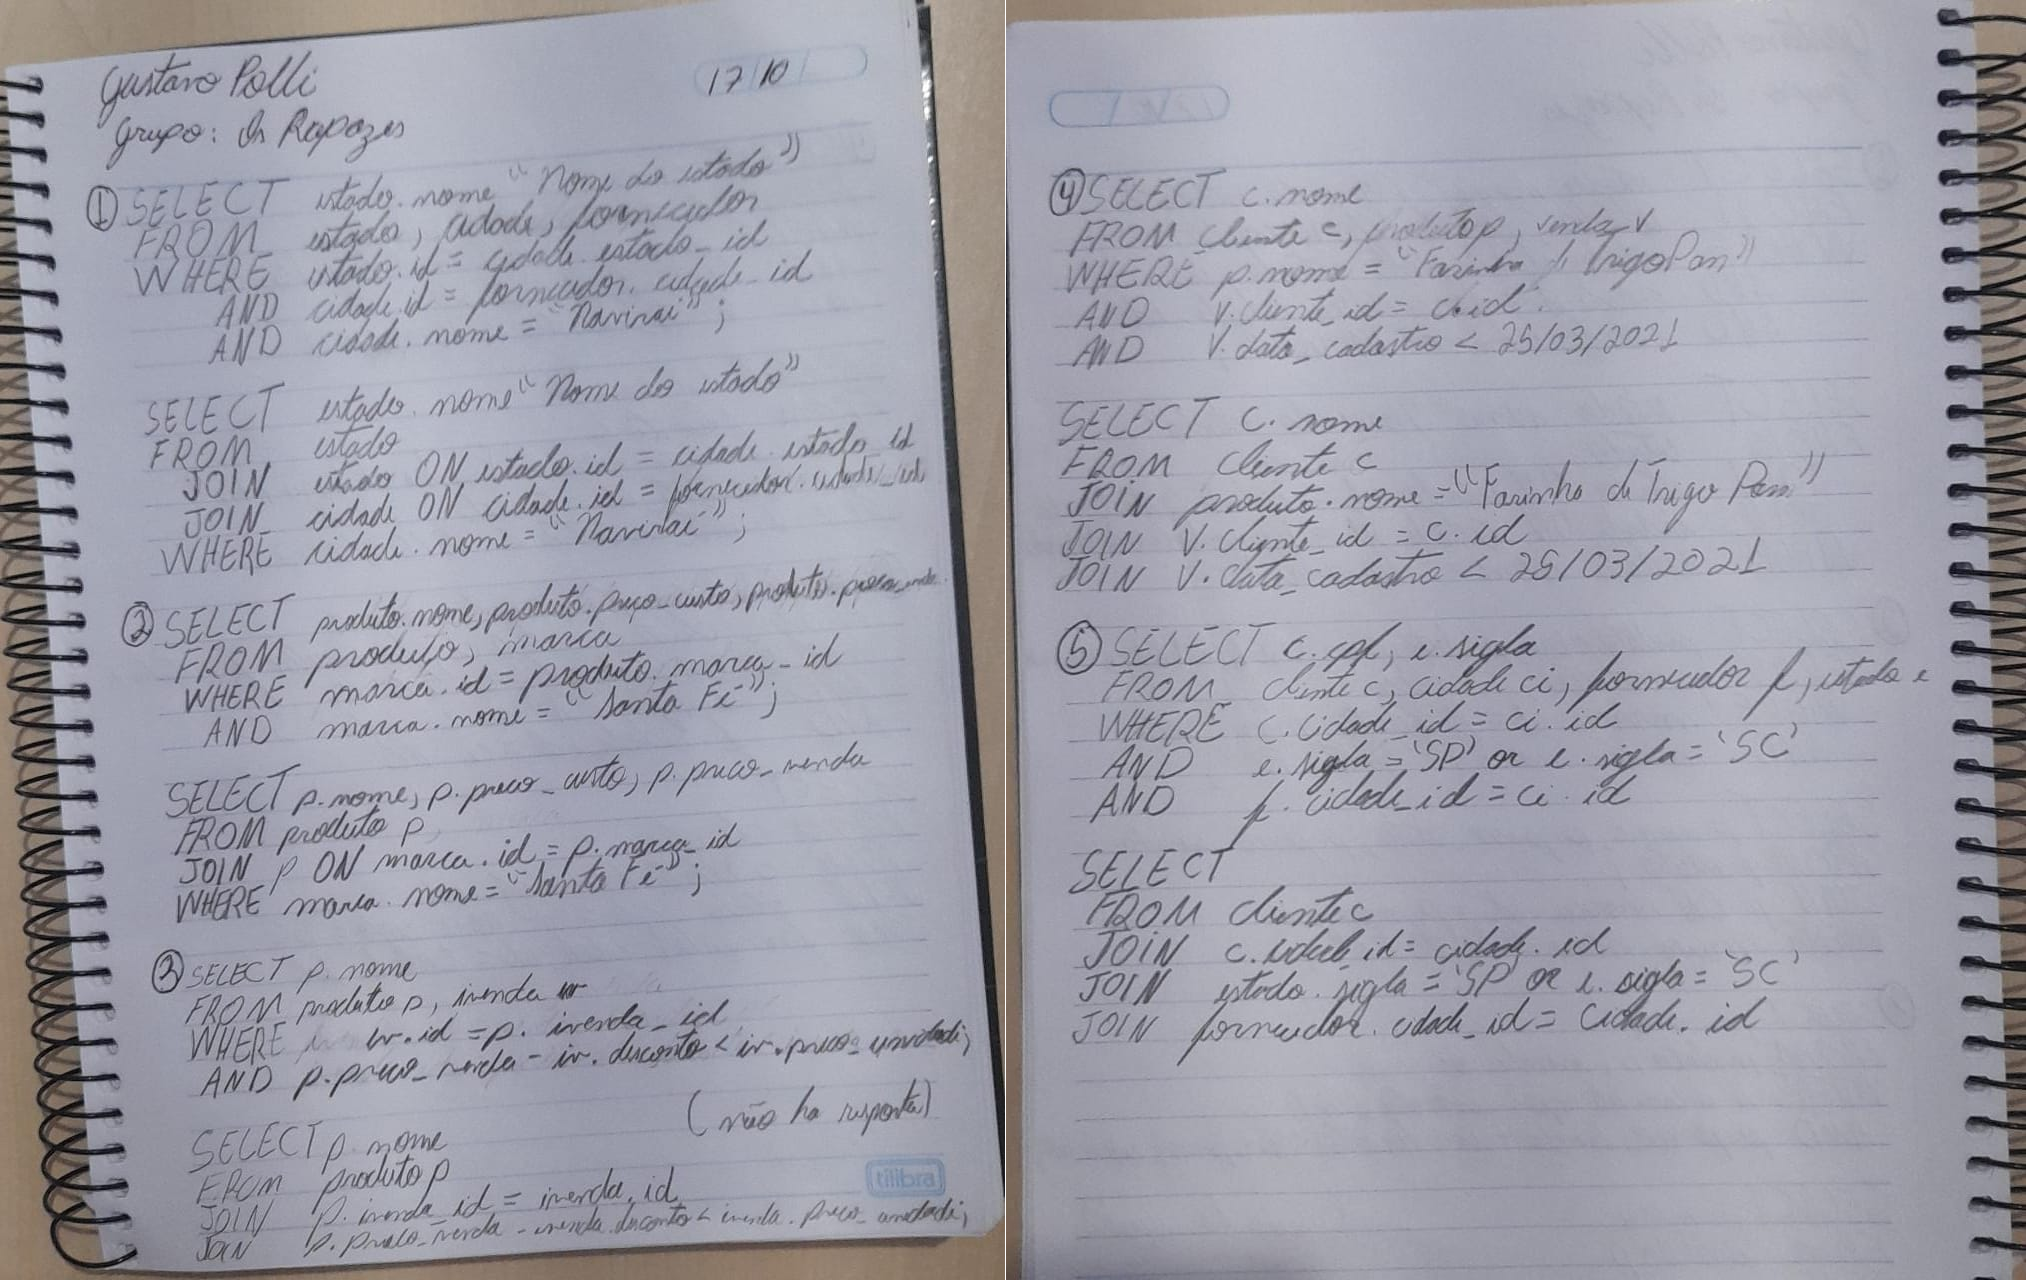 Gustavo Polli
17/10
Grupo: Os Rapazes
① SELECT estado.nome "Nome do estado"
FROM estado, cidade, fornecedor
WHERE estado.id = cidade.estado_id
AND cidade.id = fornecedor.cidade_id
AND cidade.nome = "Navirai";
SELECT estado.nome "Nome do estado"
FROM estado
JOIN estado ON estado.id = cidade.estado_id
JOIN cidade ON cidade.id = fornecedor.cidade_id
WHERE cidade.nome = "Navirai";
② SELECT produto.nome, produto.preço_custo, produto.preco_venda
FROM produto, marca
WHERE marca.id = produto.marca_id
AND marca.nome = "Santa Fé";
SELECT p.nome, p.preco_custo, p.preco_venda
FROM produto p
JOIN p ON marca.id = p.marca_id
WHERE marca.nome = "Santa Fé";
③ SELECT p.nome
FROM produto p, ivenda iv
WHERE iv.id = p.ivenda_id
AND p.preco_venda - iv.desconto < iv.preco_unidade;
(não ha resposta)
SELECT p.nome
FROM produto p
JOIN p.ivenda_id = ivenda.id
JOIN p.preco_venda - ivenda.desconto < ivenda.preco_unidade;
tilibra
④ SELECT c.nome
FROM cliente c, produto p, venda v
WHERE p.nome = "Farinha de Trigo Pan"
AND v.cliente_id = c.id
AND v.data_cadastro < 25/03/2021
SELECT c.nome
FROM cliente c
JOIN produto.nome = "Farinha de Trigo Pan"
JOIN v.cliente_id = c.id
JOIN v.data_cadastro < 25/03/2021
⑤ SELECT c.cpf, e.sigla
FROM cliente c, cidade ci, fornecedor f, estado e
WHERE c.cidade_id = ci.id
AND e.sigla = 'SP' or e.sigla = 'SC'
AND f.cidade_id = ci.id
SELECT
FROM cliente c
JOIN c.cidade_id = cidade.id
JOIN estado.sigla = 'SP' OR e.sigla = 'SC'
JOIN fornecedor.cidade_id = cidade.id